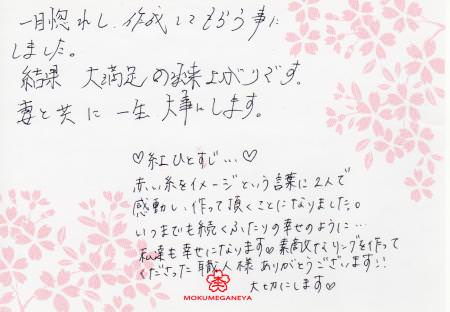 一目惚れし、作成してもらう事に
しました。
結果 大満足の出来上がりです。
妻と共に一生大事にします。
♡紅ひとすじ…♡
赤い糸をイメージという言葉に2人で
感動し、作って頂くことになりました。
いつまでも続くふたりの幸せのように…
私達も幸せになります♡素敵なリングを作って
くださった職人様ありがとうございます!!
大切にします♡
MOKUMEGANEYA